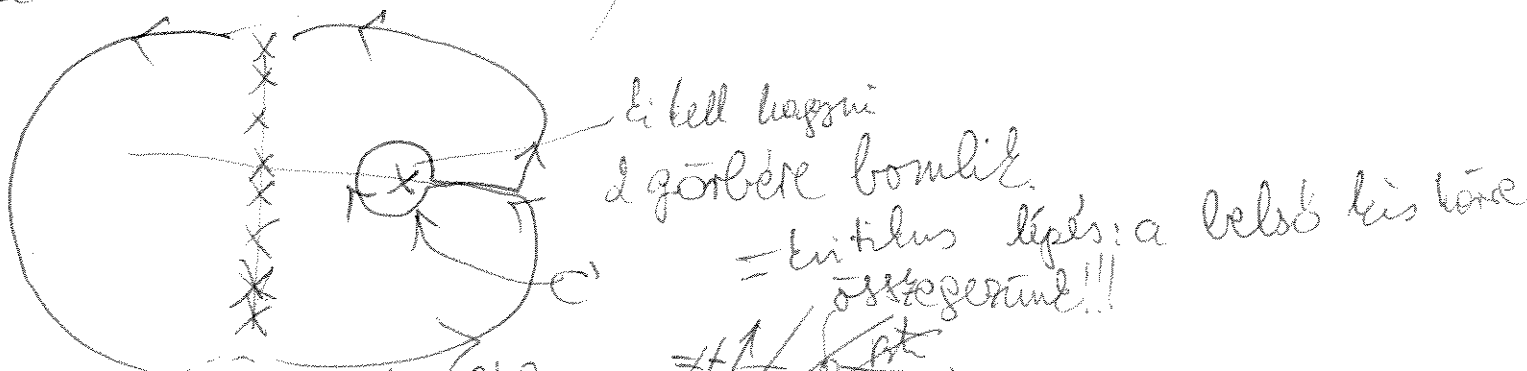 ki kell hagyni
2 görbére bomlik.
= kritikus lépés: a belső kis körre
C'
összegezünk!!!